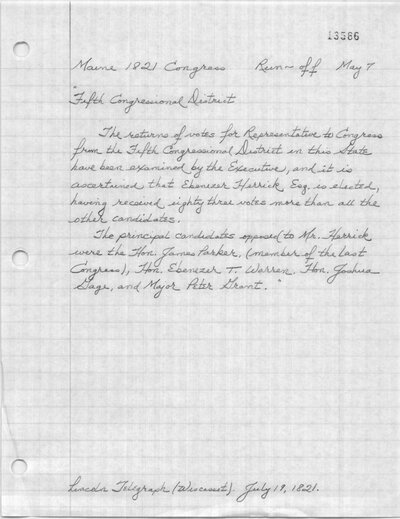 13566
Maine 1821 Congress Run-off May 7
"Fifth Congressional District
The returns of votes for Representative to Congress
from the Fifth Congressional District in this State
have been examined by the Executive, and it is
ascertained that Ebenezer Herrick Esq. is elected,
having received eighty three votes more than all the
other candidates.
The principal candidates opposed to Mr. Herrick
were the Hon. James Parker, (member of the last
Congress), Hon. Ebenezer T. Warren, Hon. Joshua
Gage, and Major Peter Grant."
Lincoln Telegraph (Wiscasset). July 19, 1821.